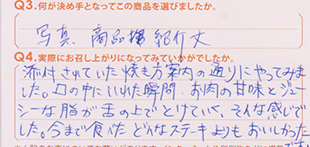 Q3.何が決め手となってこの商品を選びましたか。
写真、商品様紹介文
Q4.実際にお召し上がりになってみていかがでしたか。
添付されていた焼き方案内の通りにやってみま
した。口の中にいれた瞬間、お肉の甘味とジュー
シーな脂が舌の上でとけていく、そんな感じで
した。今まで食べたどんなステーキよりもおいしかった
です